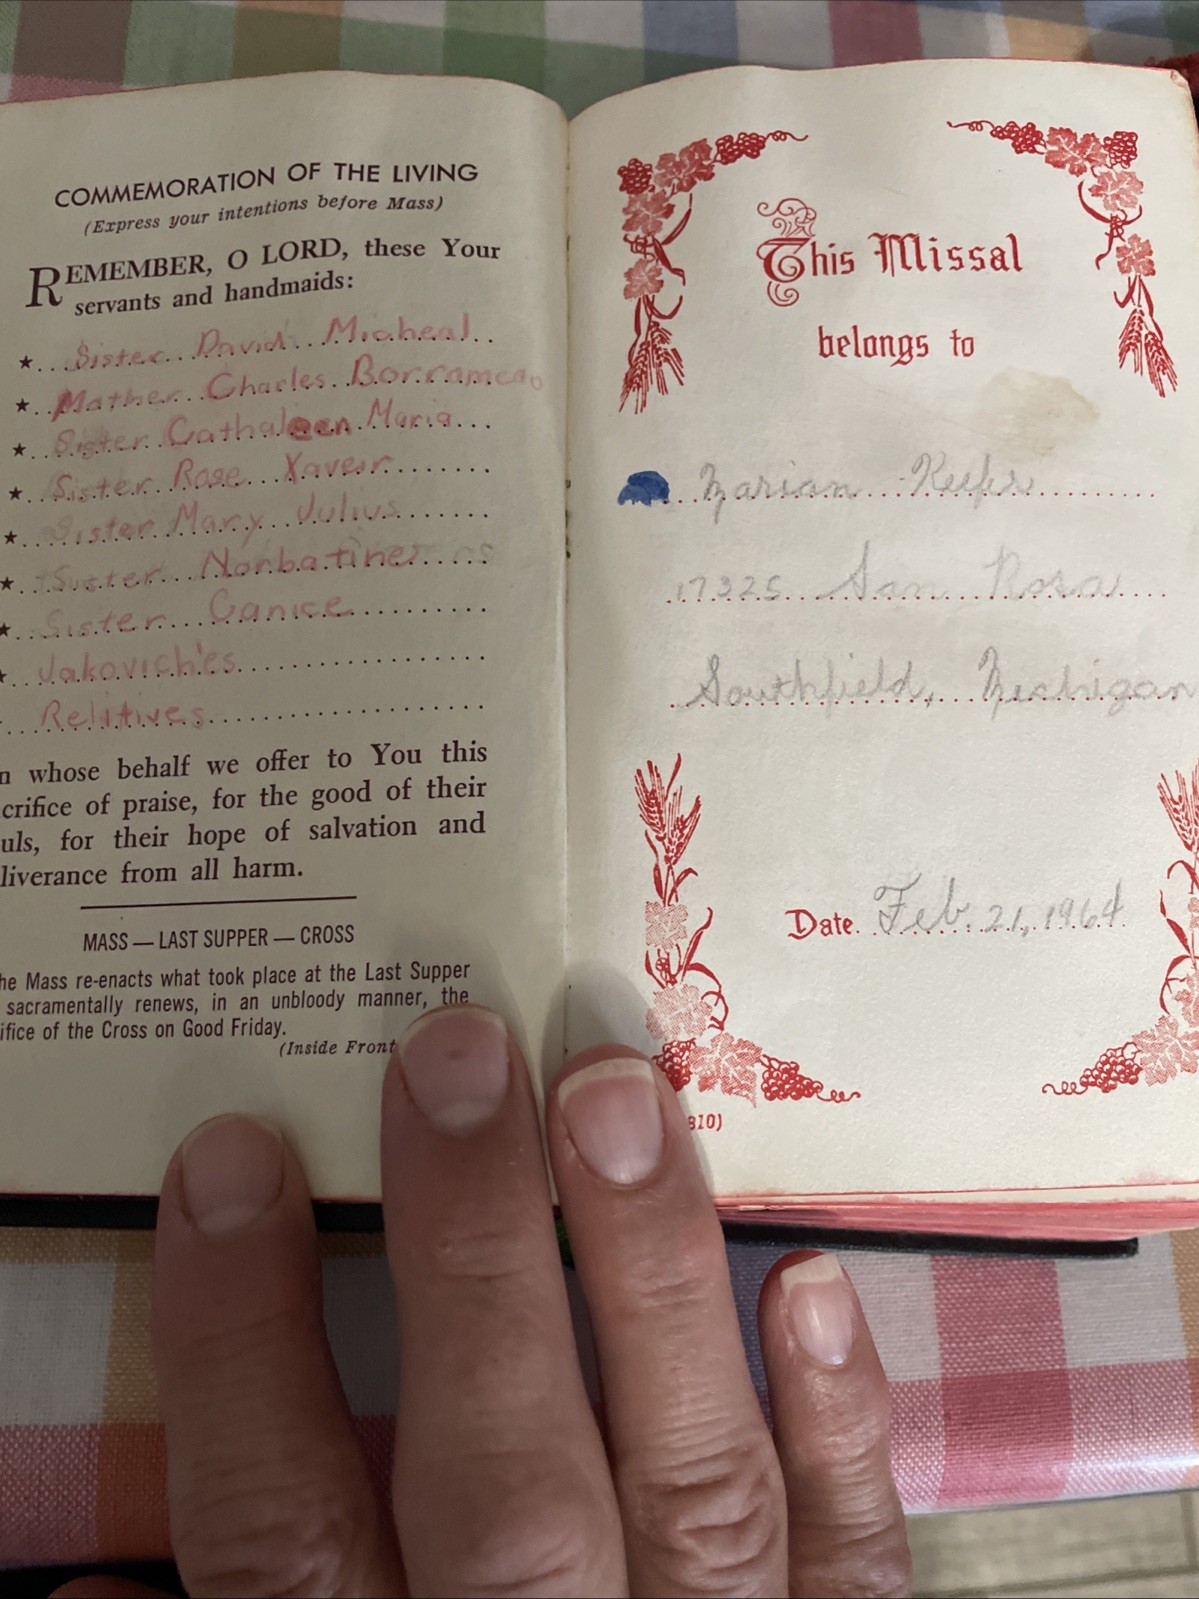 COMMEMORATION OF THE LIVING
(Express your intentions before Mass)
REMEMBER, O LORD, these Your
servants and handmaids:
Sister David Micheal
Mother Charles Borrameao
Sister Cathaleen Maria
Sister Rose Xaveir
Sister Mary Julius
Sister Norbatine
Sister Canice
Jakovich'es
Relitives
n whose behalf we offer to You this
crifice of praise, for the good of their
uls, for their hope of salvation and
liverance from all harm.
MASS — LAST SUPPER — CROSS
he Mass re-enacts what took place at the Last Supper
sacramentally renews, in an unbloody manner, the
ifice of the Cross on Good Friday.
(Inside Front
This Missal
belongs to
Marian Keefer
17325 San Rosa
Southfield, Michigan
Date Feb. 21, 1964
310)